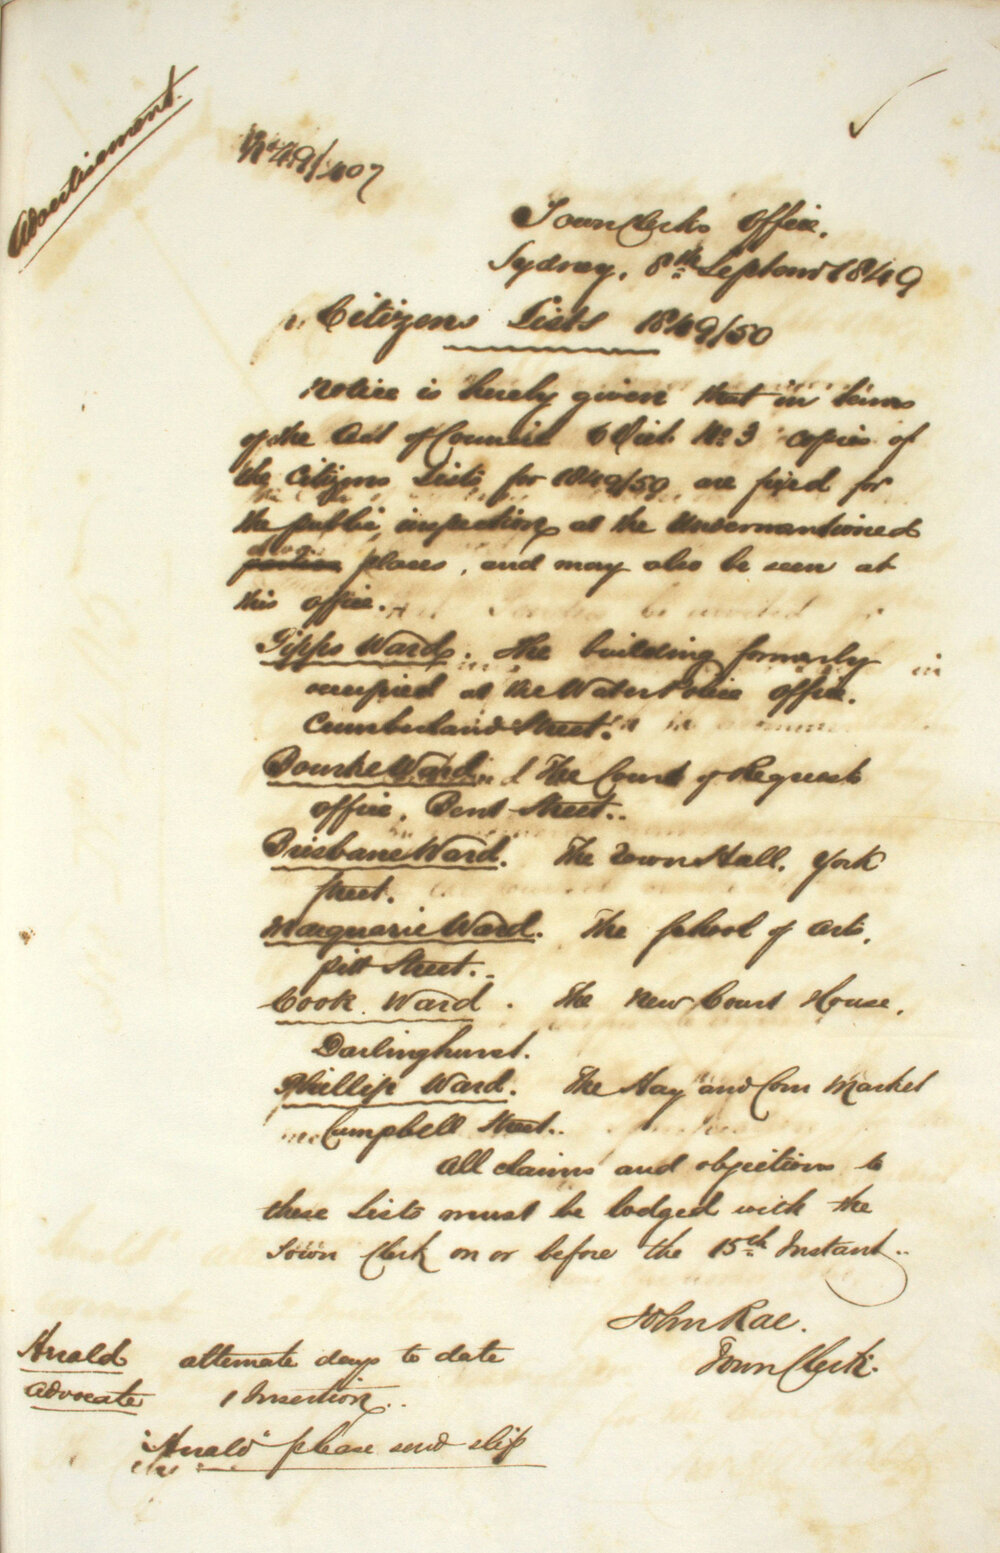 Advertisement.
No 49/407
Town Clerks Office,
Sydney, 8th Septemr 1849
Citizens Lists 1849/50
Notice is hereby given that in terms
of the Act of Council 6 Vict No 3 copies of
the Citizens Lists for 1849/50 are fixed for
the public inspection at the undermentioned
places, and may also be seen at
this office.
Gipps Ward. The building formerly
occupied as the Water Police office.
Cumberland Street.
Bourke Ward. The Court of Requests
office, Bent Street.
Brisbane Ward. The Town Hall, York
Street.
Macquarie Ward. The School of Arts,
Pitt Street.
Cook Ward. The New Court House,
Darlinghurst.
Phillip Ward. The Hay and Corn Market
Campbell Street.
All claims and objections to
these Lists must be lodged with the
Town Clerk on or before the 15th Instant.
John Rae.
Town Clerk.
Herald alternate days to date
Advocate 1 Insertion.
"Herald" please send slip